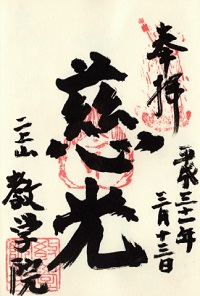 奉拝
平成三十一年
三月十三日
慈光
二上山
教学院